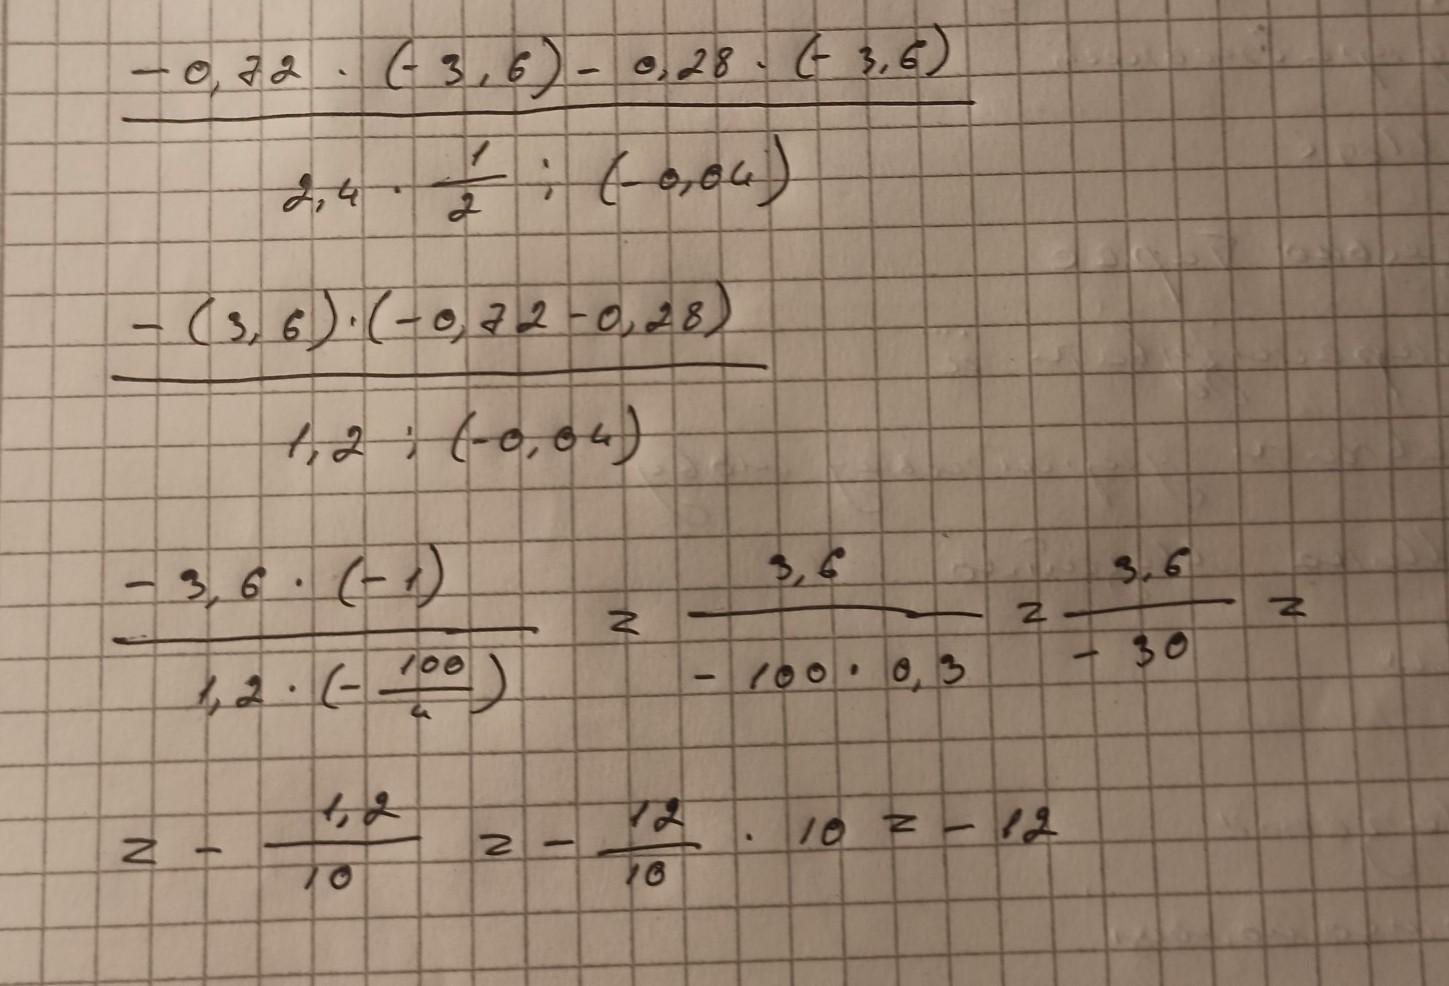 -0,72 · (-3,6) - 0,28 · (-3,6)
2,4 · 1/2 : (-0,04)
-(3,6)·(-0,72-0,28)
1,2 : (-0,04)
-3,6 · (-1) / 1,2 · (-100/4) = 3,6 / -100 · 0,3 = 3,6 / -30 =
= - 1,2/10 = - 12/10 · 10 = -12